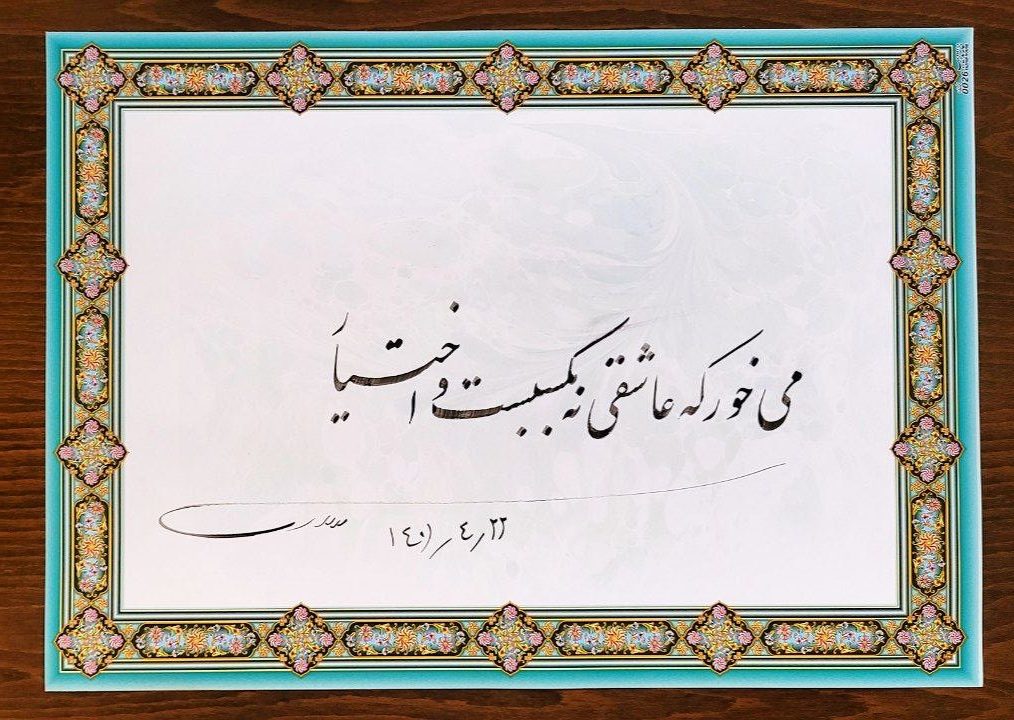 می خور که عاشقی نه بکسبست و اختیار
۱۴۰۱٫۴٫۲۲
0026